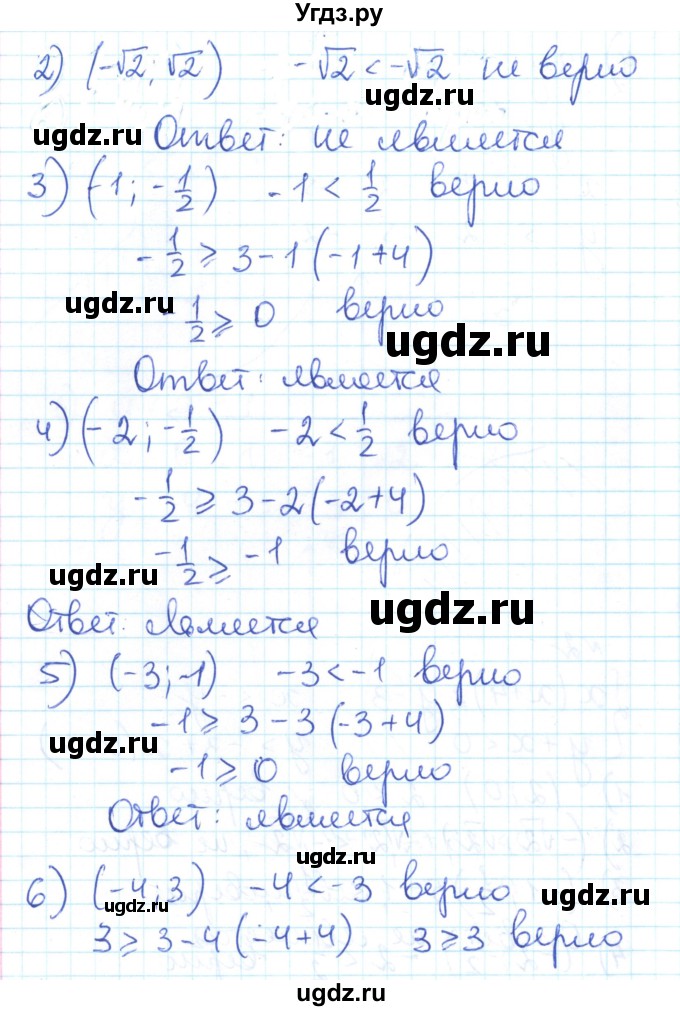 Угдз.ру
2) (-√2; √2)   -√2 < -√2 не верно
ugdz.ru
ugdz.ru Ответ: не является
3) (-1; -1/2)   -1 < 1/2 верно
-1/2 ⩾ 3-1(-1+4)
ugdz.ru
-1/2 ⩾ 0 верно
ugdz.ru
Ответ: является
4) (-2; -1/2)   -2 < 1/2 верно
-1/2 ⩾ 3-2(-2+4)
-1/2 ⩾ -1 верно
ugdz.ru
ugdz.ru
Ответ: является
5) (-3; -1)   -3 < -1 верно
-1 ⩾ 3-3(-3+4)
ugdz.ru
-1 ⩾ 0 верно
Ответ: является
ugdz.ru
6) (-4; 3)   -4 < -3 верно
ugdz.ru
ugdz.ru
3 ⩾ 3-4(-4+4)   3 ⩾ 3 верно
ugdz.ru